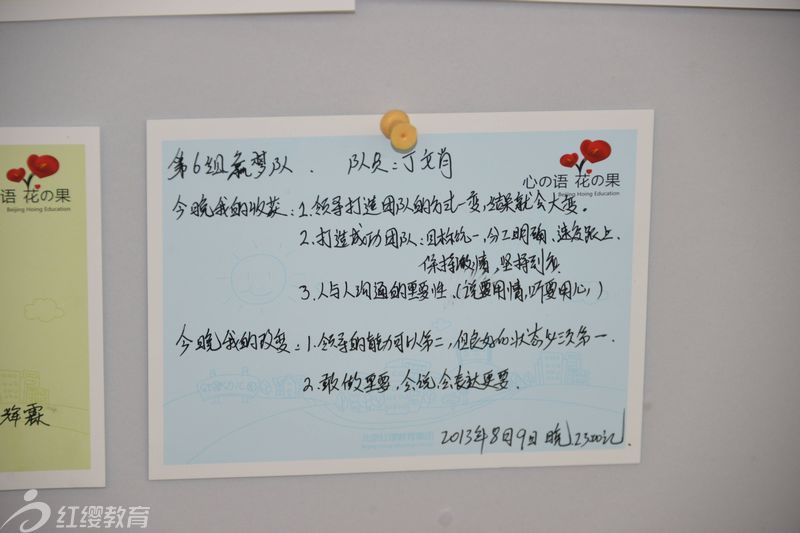 第6组筑梦队. 队员:丁文肖
心の语 花の果
Beijing Hoing Education
今晚我的收获:1.领导打造团队的方式一变,结果就会大变。
2.打造成功团队:目标统一,分工明确,速度跟上.
保持激情,坚持到底
3.人与人沟通的重要性.(说要用情,听要用心)
今晚我的改变:1.领导的能力可以第二,但良好的状态必须第一.
2.敢做重要,会说会表达更要.
2013年8月9日晚23:00记.
语 花の果
Beijing Hoing Education
辉霖
红缨教育